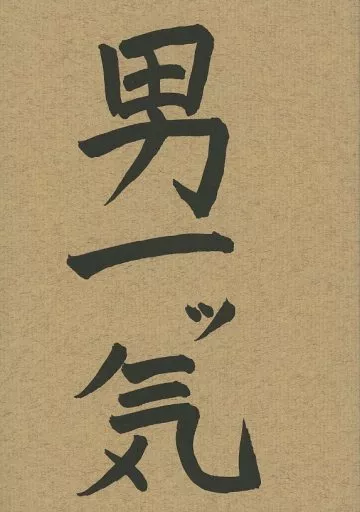 男一ッ気